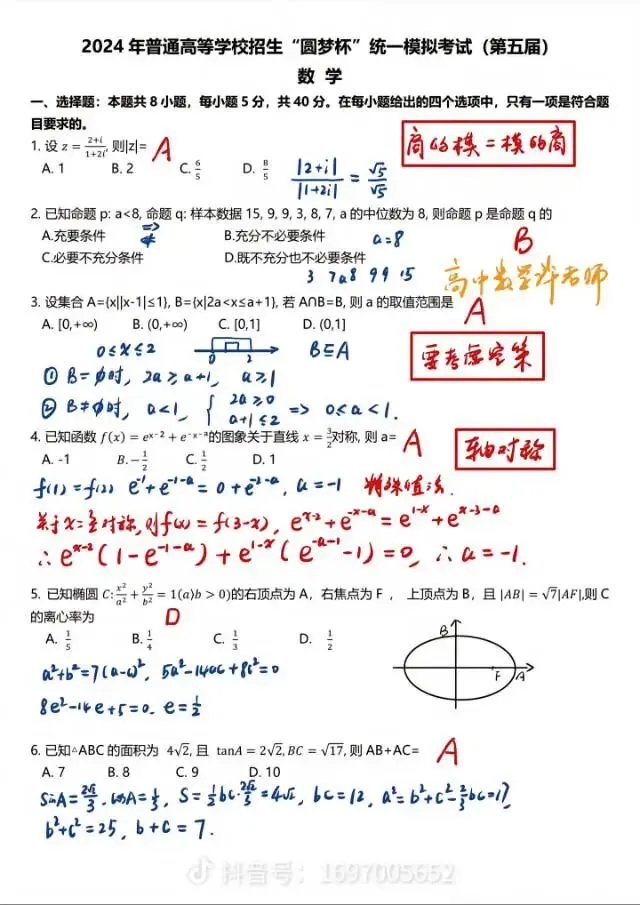 2024 年普通高等学校招生“圆梦杯”统一模拟考试（第五届）
数 学
一、选择题：本题共 8 小题，每小题 5 分，共 40 分。在每小题给出的四个选项中，只有一项是符合题
目要求的。
1. 设 z = (2+i)/(1+2i), 则|z|= A
商的模 = 模的商
A. 1 B. 2 C. 6/5 D. 8/5
|2+i|/|1+2i| = √5/√5
2. 已知命题 p: a<8, 命题 q: 样本数据 15, 9, 9, 3, 8, 7, a 的中位数为 8, 则命题 p 是命题 q 的
A.充要条件 B.充分不必要条件 a=8 B
C.必要不充分条件 D.既不充分也不必要条件
3 7 a 8 9 9 15
高中数学许老师
3. 设集合 A={x||x-1|≤1}, B={x|2a<x≤a+1}, 若 A∩B=B, 则 a 的取值范围是 A
A. [0,+∞) B. (0,+∞) C. [0,1] D. (0,1]
0≤x≤2 0 2 B⊆A
要考虑空集
① B=∅时, 2a≥a+1, a≥1
② B≠∅时, a<1, { 2a≥0 a+1≤2 => 0≤a<1.
4. 已知函数 f(x) = e^(x-2) + e^(-x-a)的图象关于直线 x = 3/2对称, 则 a= A
轴对称
A. -1 B. -1/2 C. 1/2 D. 1
f(1)=f(2) e^(-1)+e^(-1-a) = 0+e^(-2-a), a=-1 特殊值法.
关于x=3/2对称, 则f(x)=f(3-x), e^(x-2)+e^(-x-a) = e^(1-x)+e^(x-3-a)
∴ e^(x-2)(1-e^(-1-a))+e^(1-x)(e^(-a-1)-1)=0, ∴ a=-1.
5. 已知椭圆 C: x²/a² + y²/b² = 1(a⟩b > 0)的右顶点为 A，右焦点为 F ， 上顶点为 B，且 |AB| = √7|AF|,则 C
的离心率为 D
A. 1/5 B. 1/4 C. 1/3 D. 1/2
B F A
a²+b²=7(a-c)², 5a²-14ac+8c²=0
8e²-14e+5=0. e=1/2
6. 已知△ABC 的面积为 4√2, 且 tanA = 2√2, BC = √17, 则 AB+AC= A
A. 7 B. 8 C. 9 D. 10
sinA=2√2/3. cosA=1/3, S=1/2bc·2√2/3=4√2, bc=12, a²=b²+c²-2/3bc=17,
b²+c²=25, b+c=7.
抖音号：1697005652